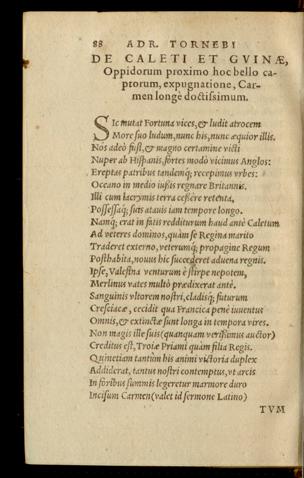 88 ADR. TORNEBI
DE CALETI ET GVINÆ,
Oppidorum proximo hoc bello ca-
ptorum, expugnatione, Car-
men longè doctissimum.
SIc mutat Fortuna vices, & ludit atrocem
More suo ludum, nunc his, nunc æquior illis.
Nos adeò fusi, & magno certamine victi
Nuper ab Hispanis, fortes modò vicimus Anglos:
Ereptas patribus tandemq; recepimus vrbes:
Oceano in medio iussis regnare Britannis.
Illi cum lacrymis terra cessere retenta,
Possessaq; suis atauis iam tempore longo.
Namq; erat in fatis redditurum haud antè Caletum
Ad veteres dominos, quàm se Regina marito
Traderet externo, veterumq; propagine Regum
Posthabita, nouus hic succederet aduena regnis.
Ipse, Valesina venturum è stirpe nepotem,
Merlinus vates multò prædixerat antè.
Sanguinis vltorem nostri, cladisq; futurum
Cresciacæ, cecidit qua Francica penè iuuentus
Omnis, & extinctæ sunt longa in tempora vires.
Non magis ille suis (quanquam verissimus auctor)
Creditus est, Troiæ Priami quàm filia Regis.
Quinetiam tantùm his animi victoria duplex
Addiderat, tantus nostri contemptus, vt arcis
In foribus summis legeretur marmore duro
Incisum Carmen (valet id sermone Latino)
TVM